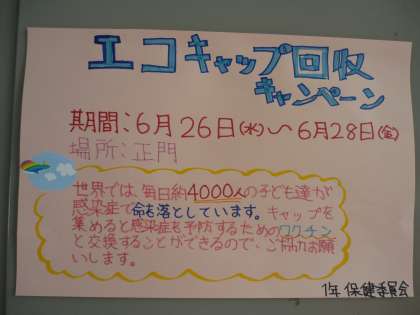 エコキャップ回収
キャンペーン
期間:6月26日(水)〜6月28日(金)
場所:正門
世界では、毎日約4000人の子ども達が
感染症で命を落としています。キャップを
集めると感染症を予防するためのワクチン
と交換することができるので、ご協力お願
いします。
1年 保健委員会